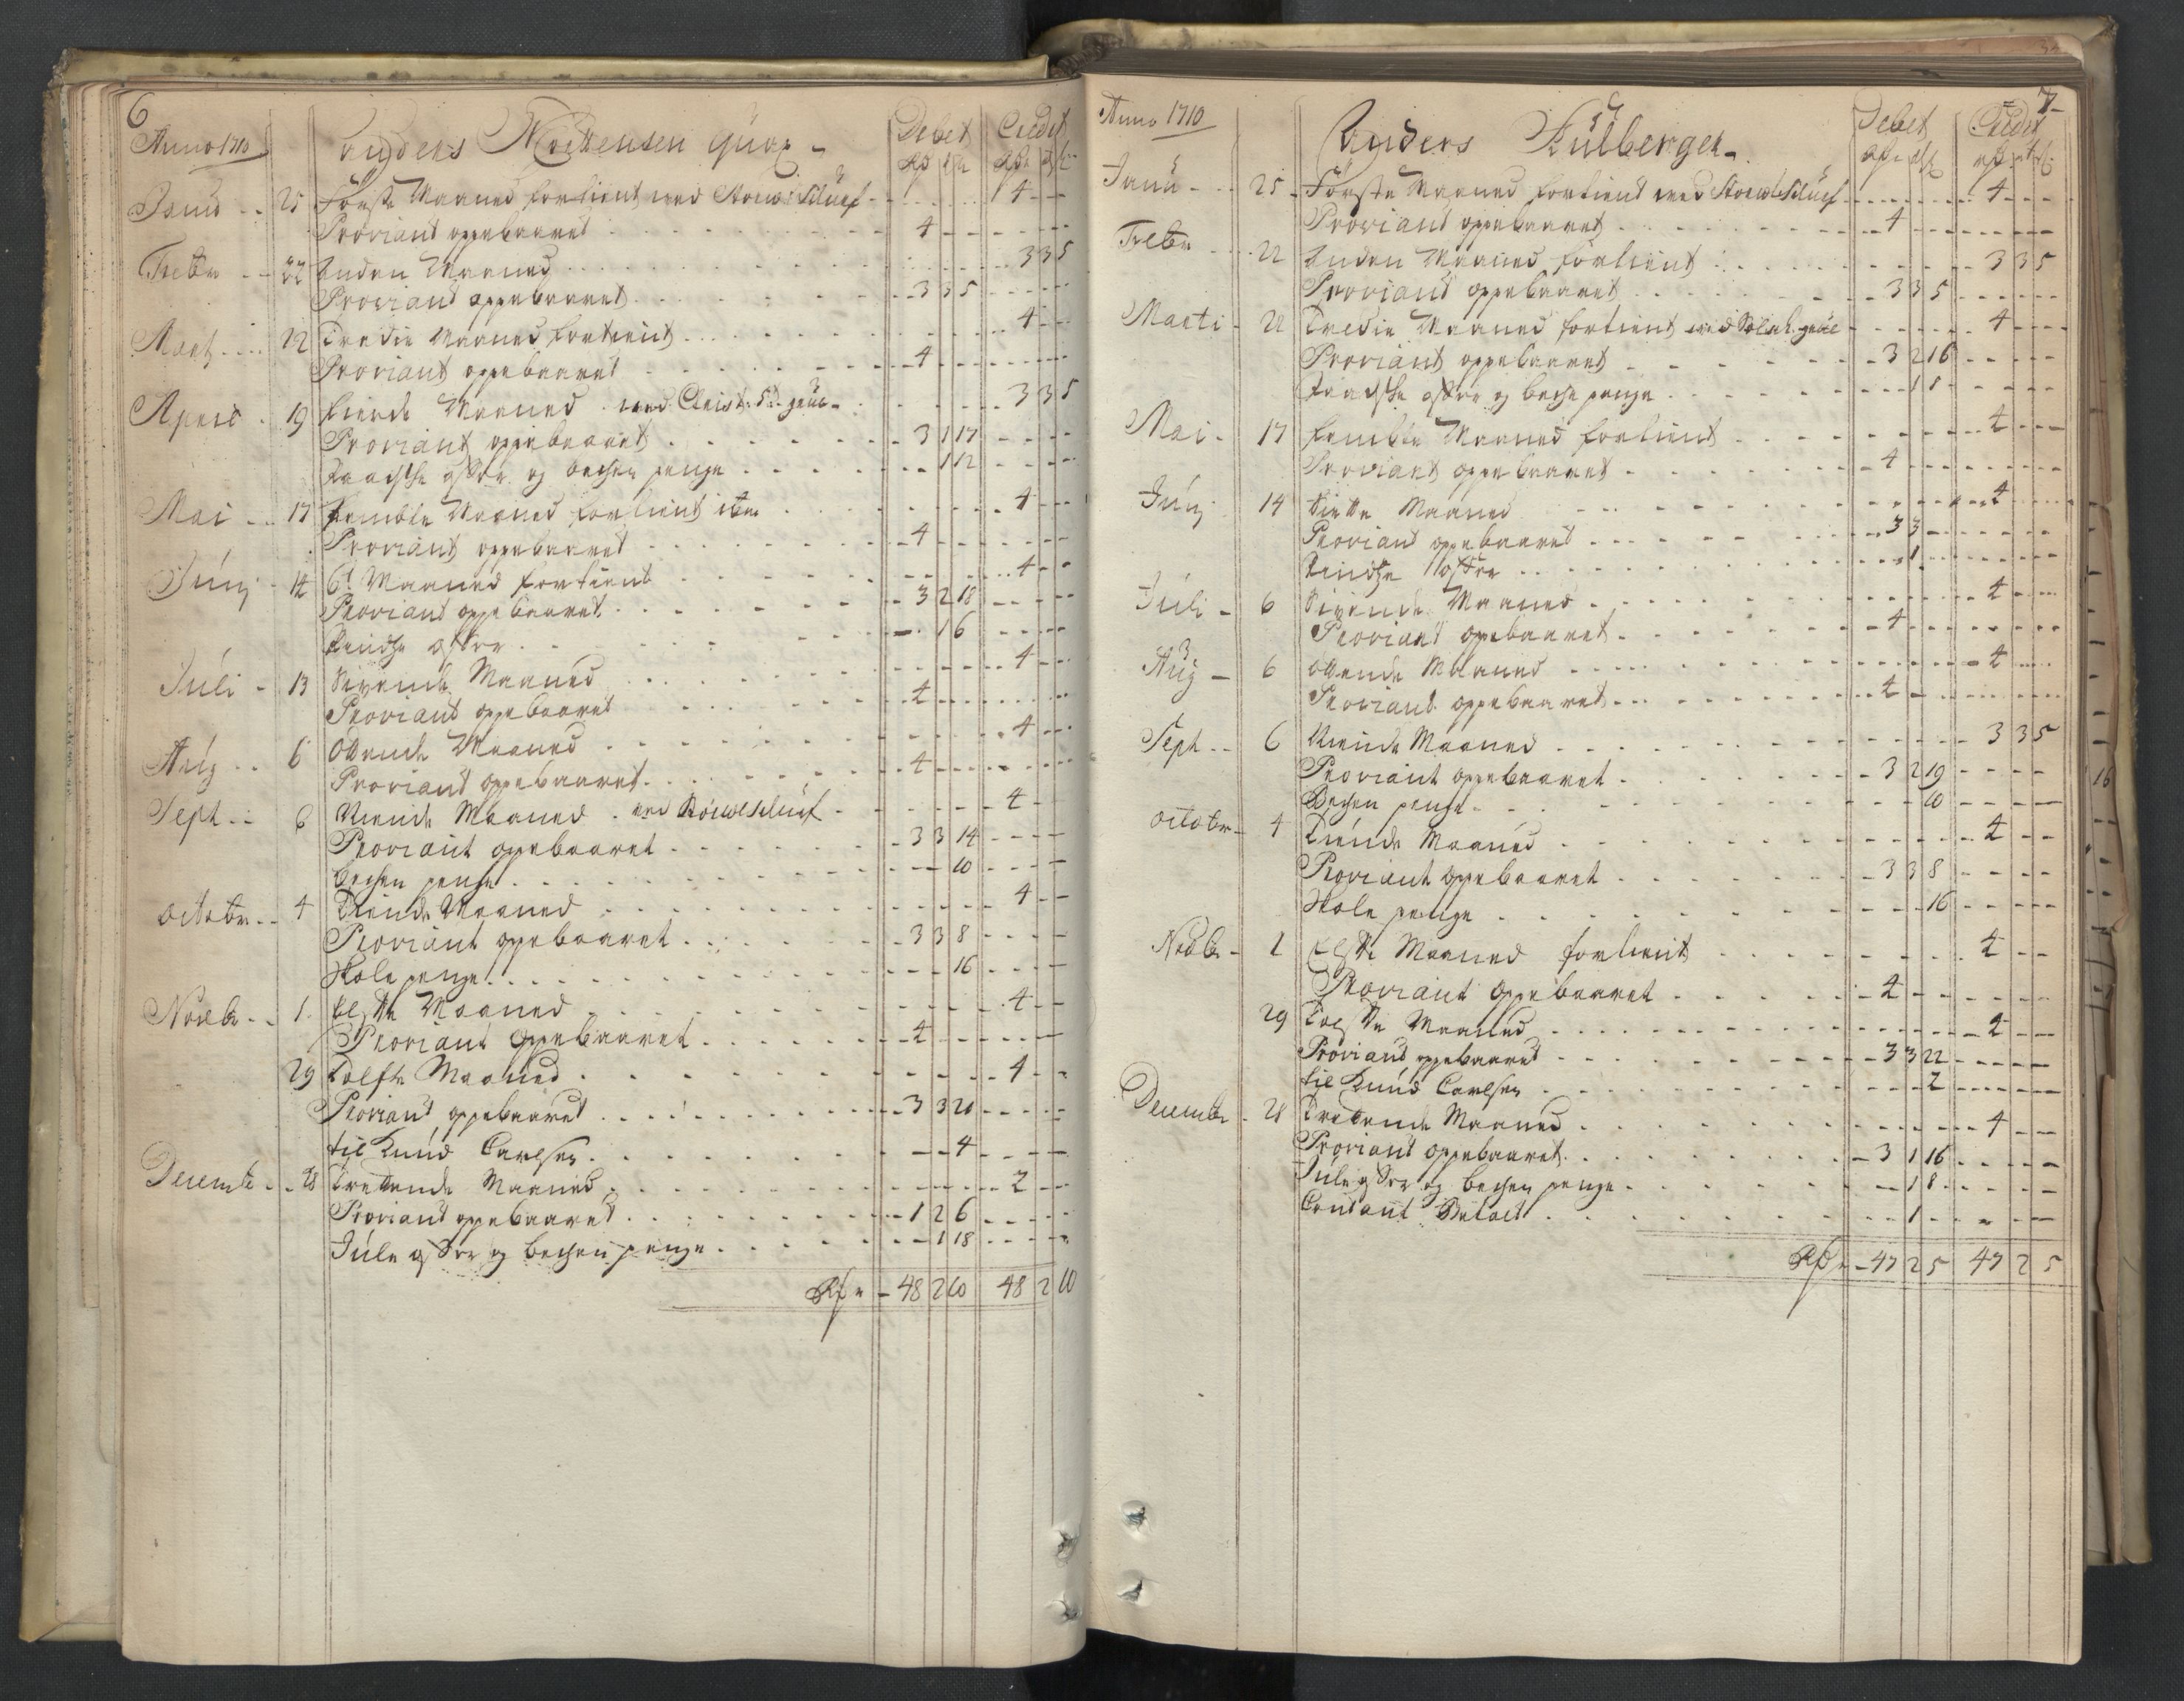 6
Anno 1710 Anders Mortensen quar - Debet Credit
Janu - - 25 Förste Maaned fortient ved - 4 - -
Proviant oppebaaret - 4 - -
Febr - - 22 Anden Maaned 3 3 5
Proviant oppebaaret - 3 3 5
Mart - - 22 Tredie Maaned fortient 4 - -
Proviant oppebaaret - 4 - -
April - 19 fierde Maaned ved 3 3 5
Proviant oppebaaret - 3 1 17
og bechen penge - - 1 12
Mai - - 17 fembte Maaned fortient item 4 - -
Proviant oppebaaret - 4 - -
Junj - 14 6t Maaned fortient 4 - -
Proviant oppebaaret - 3 2 18
offer - - 1 6
Juli - 13 Sivende Maaned 4 - -
Proviant oppebaaret - 4 - -
Aug - - 6 Ottende Maaned 4 - -
Proviant oppebaaret - 4 - -
Sept - - 6 Niende Maaned ved 4 -
Proviant oppebaaret - 3 3 14
bechen penge - - - 10
octobr - - 4 Tiende Maaned 4 - -
Proviant oppebaaret - 3 3 8
Skole penge - - - 16
Novbr - - 1 Elfte Maaned 4 - -
Proviant oppebaaret - 4 - -
29 Tolfte Maaned 4 - -
Proviant oppebaaret - 3 3 20
til Knud Carlsen - - - 4
Decemb - - 28 Trettende Maaned 2 - -
Proviant oppebaaret - 1 2 6
Jule offer og bechen penge - - 1 18
Rdr - 48 2 10 48 2 10
7
Anno 1710 Anders Kulberget - Debet Credit
Janu - - 25 - Förste Maaned fortient ved 4 - -
Proviant oppebaaret - 4 - -
Febr - - 22 Anden Maaned fortient 3 3 5
Proviant oppebaaret - 3 3 5
Marti - 22 Tredie Maaned fortient ved 4 - -
Proviant oppebaaret - 3 2 16
og beche penge - - 1 8
Mai - 17 fembte Maaned fortient 4 - -
Proviant oppebaaret - 4 - -
Junj 14 Siette Maaned 4 - -
Proviant oppebaaret - 3 3 -
offer - - 1 -
Juli - 6 Sivende Maaned - 4 - -
Proviant opebaaret - 4 - -
Aug - 6 Ottende Maaned 4 - -
Proviant oppebaaret - 4 - -
Sept - - 6 Niende Maaned 3 3 5
Proviant oppebaaret - 3 2 19
Bechen penge - - - 10
octobr - 4 Tiende Maaned 4 - -
Proviant oppebaaret - 3 3 8
Skole penge - - - 16
Novbr - 1 Elfte Maaned fortient 4 - -
Proviant oppebaaret - 4 - -
29 Tolfte Maaned 4 - -
Proviant oppebaaret - 3 3 22
til Knud Carlsen - - - 2
Decembr - 28 Trettende Maaned 4 - -
Proviant oppebaaret - 3 1 16
Jule offer og bechen penge - - 1 8
Contant Betalt - - 1 -
Rdr - 47 2 5 47 2 5